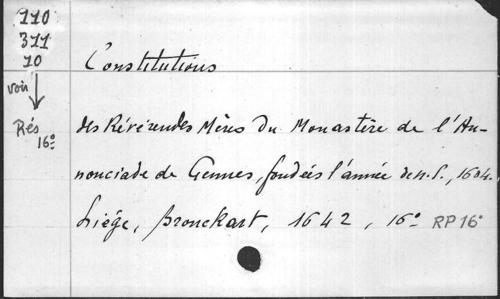 110
371
10
voir
Rés
16°
Constitutions
des Révérendes Mères du Monastère de l'An-
nonciade de Gennes, fondées l'année de n.S., 1604.
Liége, Bronckart, 1642, 16° RP 16°